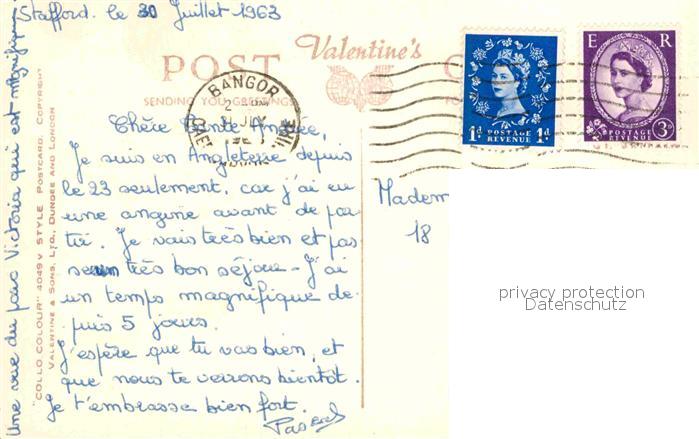 Stafford. le 30 Juillet 1963
POST
Valentine's
SENDING YOU GREETINGS
BANGOR
Chère Tante
Je suis en Angleterre depuis
le 23 seulement, car j'ai eu
une angine avant de par
tir. Je vais très bien et pas
se un très bon séjour - J'ai
un temps magnifique de-
puis 5 jours.
J'espère que tu vas bien, et
que nous te verrons bientôt.
Je t'embrasse bien fort.
Pascal
1d POSTAGE REVENUE 1d
E R
POSTAGE REVENUE 3d
Madem
18
privacy protection
Datenschutz
Une vue du parc Victoria qui est magnifique
"COLLO COLOUR" 4049V STYLE POSTCARD. COPYRIGHT
VALENTINE & SONS, LTD., DUNDEE AND LONDON